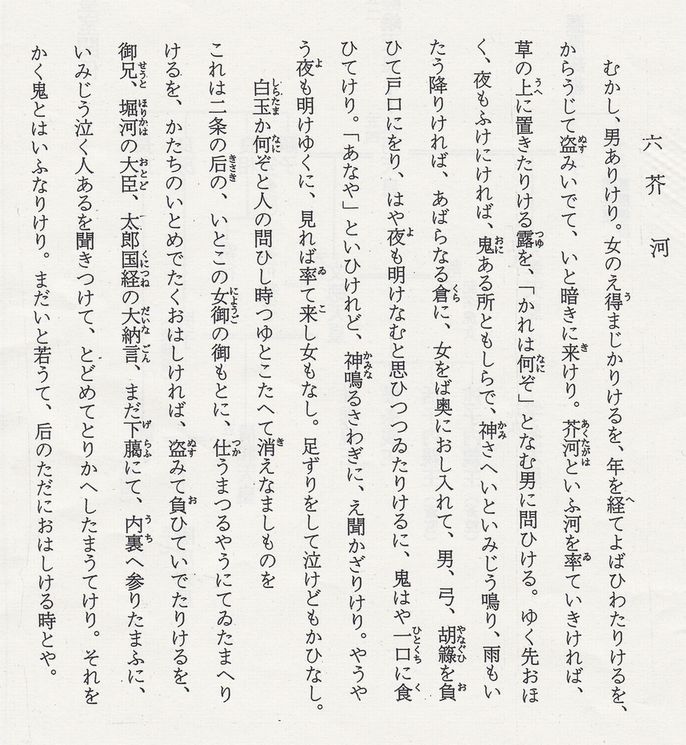 六 芥 河
むかし、男ありけり。女のえ得まじかりけるを、年を経てよばひわたりけるを、
からうじて盗みいでて、いと暗きに来けり。芥河といふ河を率ていきければ、
草の上に置きたりける露を、「かれは何ぞ」となむ男に問ひける。ゆく先おほ
く、夜もふけにければ、鬼ある所ともしらで、神さへいといみじう鳴り、雨もい
たう降りければ、あばらなる倉に、女をば奥におし入れて、男、弓、胡籙を負
ひて戸口にをり、はや夜も明けなむと思ひつつゐたりけるに、鬼はや一口に食
ひてけり。「あなや」といひけれど、神鳴るさわぎに、え聞かざりけり。やうや
う夜も明けゆくに、見れば率て来し女もなし。足ずりをして泣けどもかひなし。
白玉か何ぞと人の問ひし時つゆとこたへて消えなましものを
これは二条の后の、いとこの女御の御もとに、仕うまつるやうにてゐたまへり
けるを、かたちのいとめでたくおはしければ、盗みて負ひていでたりけるを、
御兄、堀河の大臣、太郎国経の大納言、まだ下臈にて、内裏へ参りたまふに、
いみじう泣く人あるを聞きつけて、とどめてとりかへしたまうてけり。それを
かく鬼とはいふなりけり。まだいと若うて、后のただにおはしける時とや。